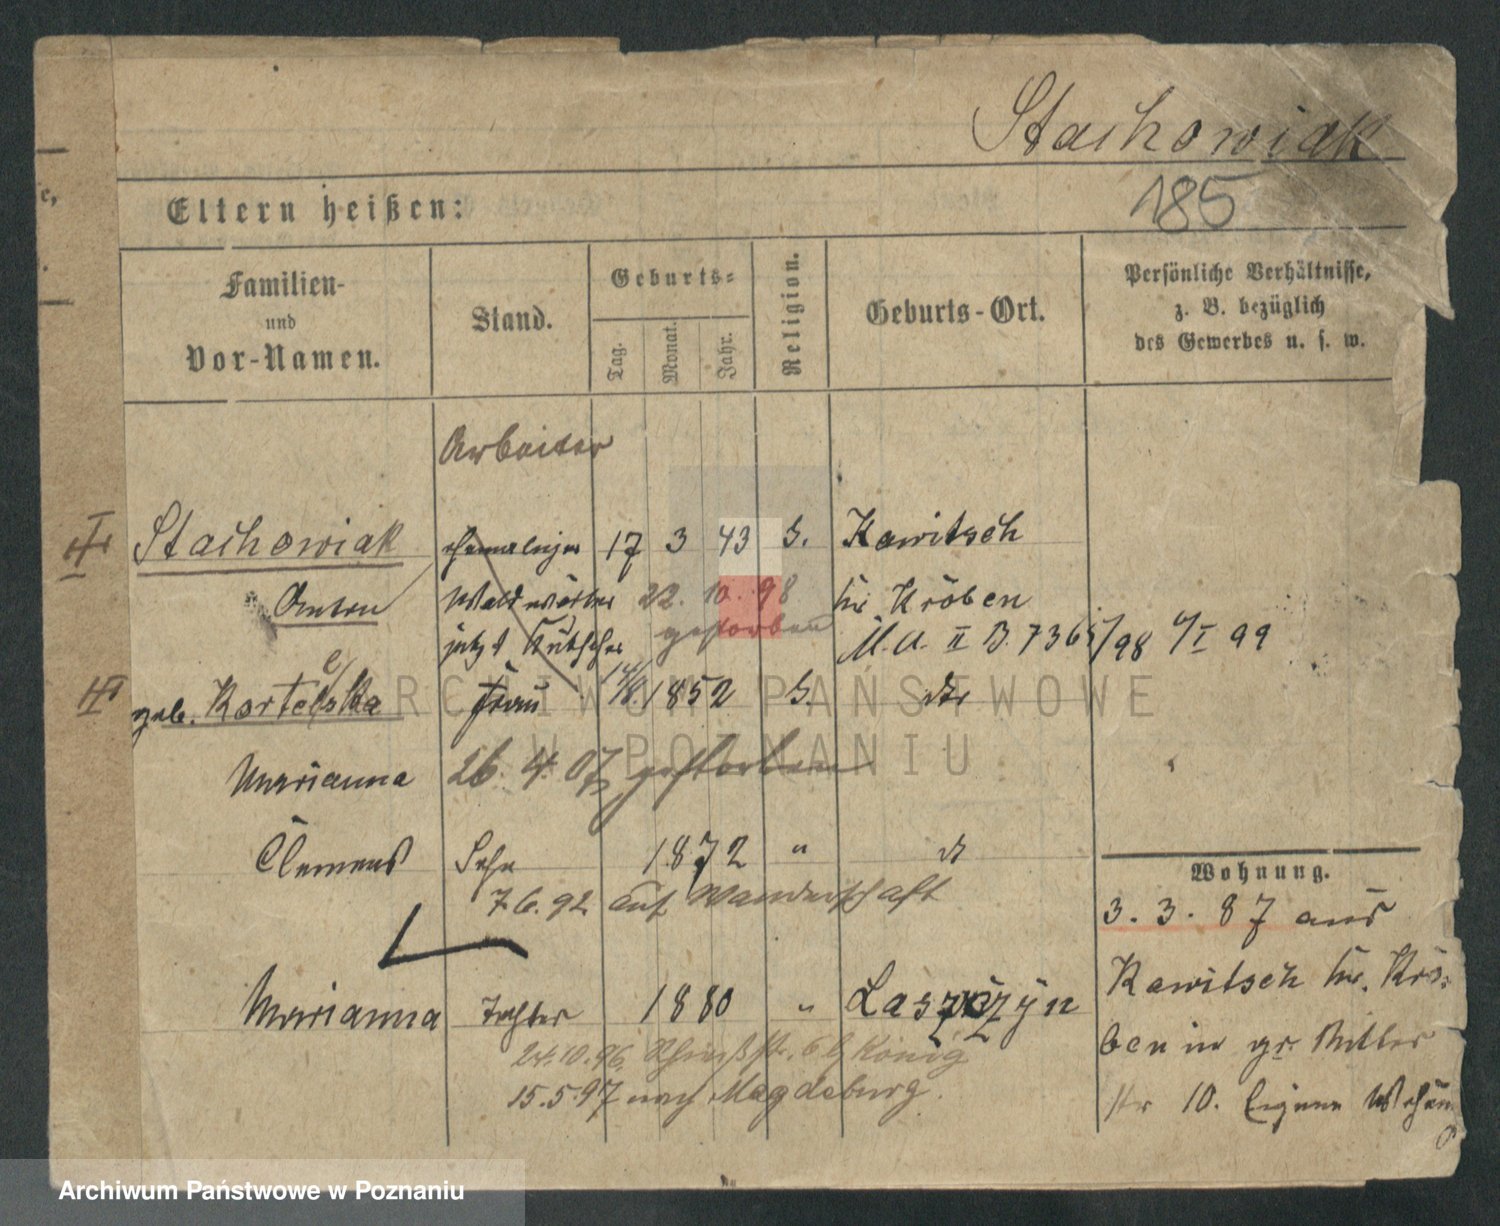 Stachowiak
185
Eltern heißen:
Familien-
und
Vor-Namen.
Stand.
Geburts-
Tag.
Monat.
Jahr.
Religion.
Geburts-Ort.
Persönliche Verhältnisse,
z. B. bezüglich
des Gewerbes u. s. w.
Arbeiter
Stachowiak ehemaliger 17 3 43 Rawitsch
Anton Waldwärter 22. 10. 98 Kr. Kröben
jetzt Kutscher gestorben M. A. II B. 7365/98 4/I 99
geb. Kortelska Frau 14/8. 1852 dto
Marianna 26. 4. 07 gestorben
Clemens Sohn 1872 " dt
7.6.92 auf Wanderschaft
Marianna Tochter 1880 " Laszczyn
24.10.96. b König
15.5.97 nach Magdeburg.
Wohnung.
3. 3. 87 aus
Rawitsch Kr. Krö-
ben in gr. Ritter
str 10. Eigene
ARCHIWUM PAŃSTWOWE
W POZNANIU
Archiwum Państwowe w Poznaniu